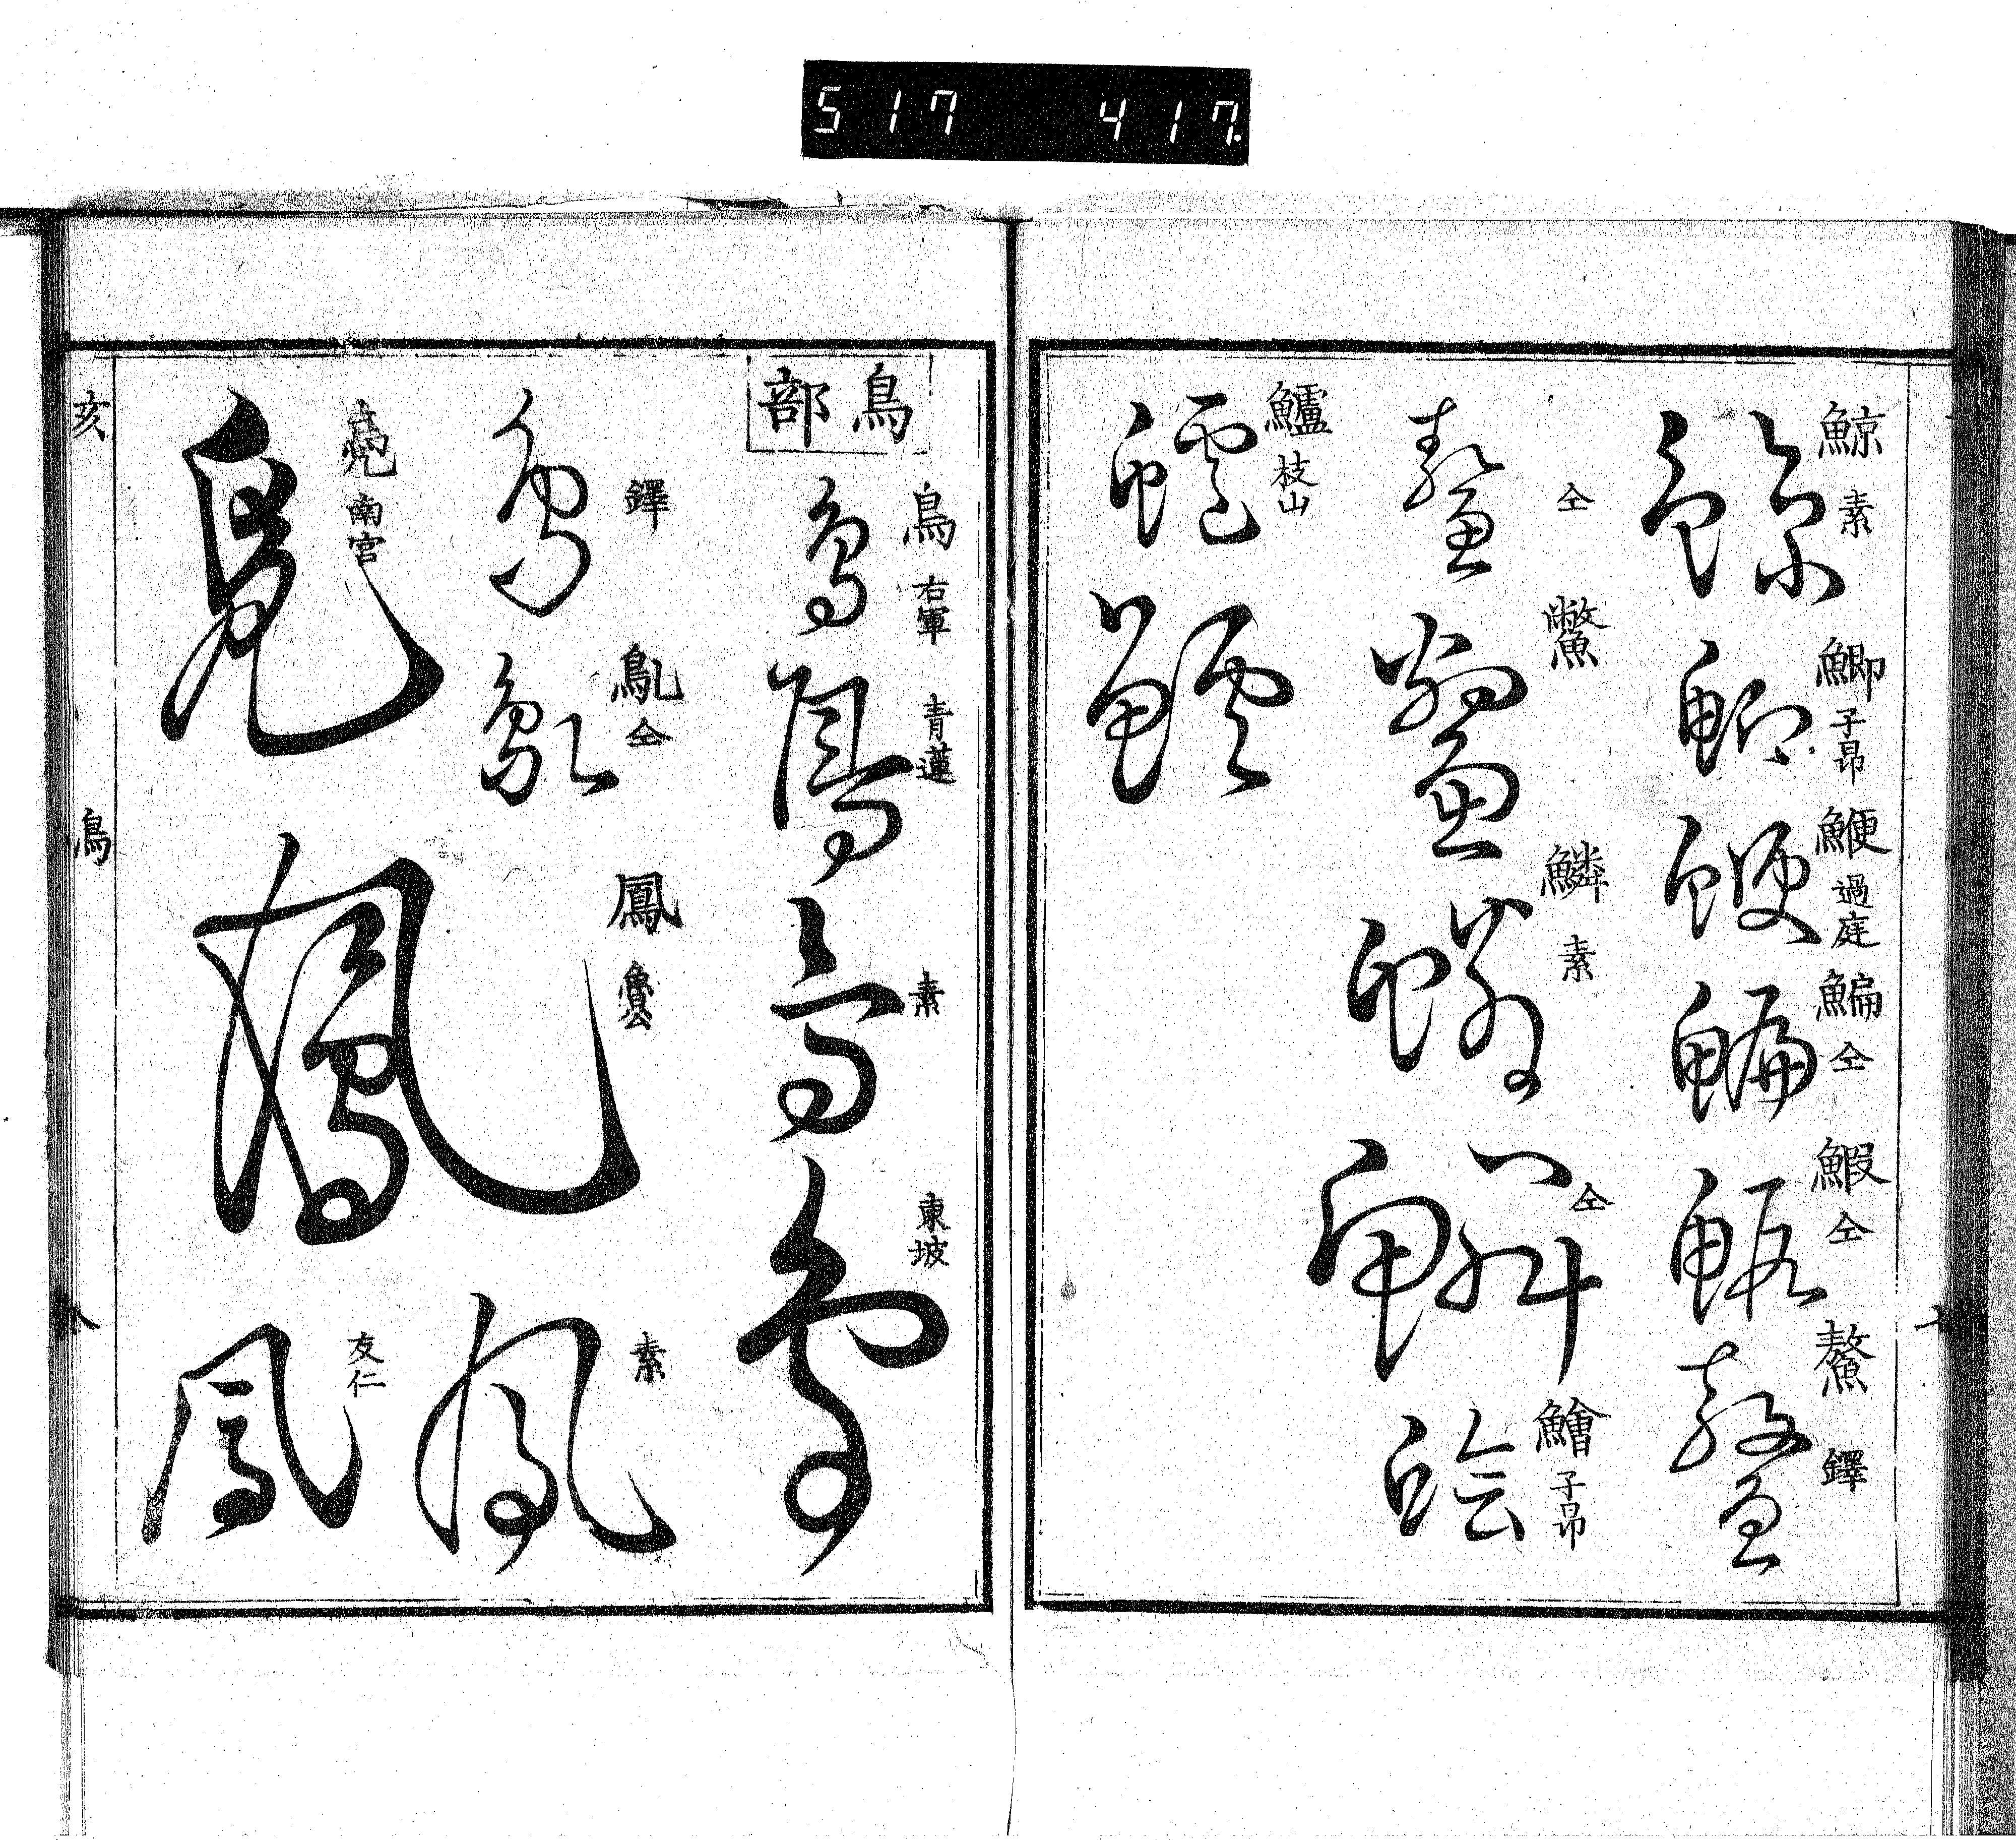 517 417.
鯨 素 鯽 子昂 鯾 過庭 鯿 仝 鰕 仝 鰲 鐸
仝 鱉 鱗 素 仝 鱠 子昂
鱸 枝山
鳥部
鳥 右軍 青蓮 素 東坡
鐸 鳦 仝 鳳 魯公 素
鳧 南宮 友仁
亥 鳥 八